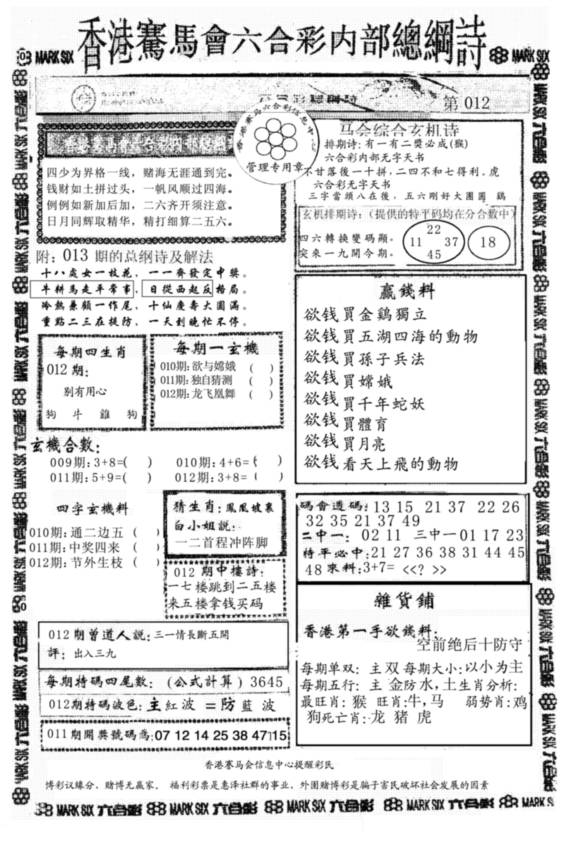 香港賽馬會六合彩内部總綱詩
MARK SIX
MARK SIX
第 012
香港赛马会六合彩信息中心
管理专用章
四少为界格一线，赌海无涯通到完。
钱财如土拼过头，一帆风顺过四海。
例例如新加后加，二六齐开须注意。
日月同辉取精华，精打细算二五六。
附：013 期的总纲诗及解法
十八岁女一枝花，一一齊發定中獎。
牛耕馬走平常事，日從西起反格局。
冷熱兼顧一作尾，十仙慶壽大團滿。
重點二三在提防，一天到晚忙不停。
马会综合玄机诗
排期诗：有一有二獎必成(猴)
六合彩内部无字天书
不甘落後一十拼，二四不和七得利。虎
六合彩无字天书
三字當頭八在後，五六剛好大團圓 鷄
玄机排期诗：(提供的特平码均在分合數中)
四六轉換變碼顯。
突來一九開今期。
22
11 37
45
18
每期四生肖
012 期：
别有用心
狗 斗 雞 狗
每期一玄機
010期：欲与嫦娥 （ ）
011期：独自猜测 （ ）
012期：龙飞凰舞 （ ）
赢錢料
欲钱買金鷄獨立
欲钱買五湖四海的動物
欲钱買孫子兵法
欲钱買嫦娥
欲钱買千年蛇妖
欲钱買體育
欲钱買月亮
欲钱看天上飛的動物
玄機合数：
009期：3+8=( ) 010期：4+6=( )
011期：5+9=( ) 012期：3+8=( )
四字玄機料
010期：通二边五 （
011期：中奖四来 （
012期：节外生枝 （ ）
猜生肖：鳳凰披裏
白小姐説：
一二首程冲阵脚
012 期中樓詩：
一七楼跳到二五楼
来五楼拿钱买码
碼會透碼：13 15 21 37 22 26
32 35 21 37 49
二中一： 02 11 三中一01 17 23
特平必中：21 27 36 38 31 44 45
48 來料：3+7= <<? >>
012 期曾道人説：三一情長斷五関
評：出入三九
每期特碼四尾數：（公式計算）3645
012期特碼波色：主紅波 =防藍 波
011期開獎號碼為：07 12 14 25 38 47 15
雜貨鋪
香港第一手欲錢料：
空前绝后十防守
每期单双：主 双 每期大小：以小为主
每期五行：主 金防水，土生肖分析：
最旺肖：猴 旺肖：牛，马 弱势肖：鸡
狗死亡肖：龙 猪 虎
香港赛马会信息中心提醒彩民
博彩议缘分，赌博无赢家。 福利彩票是惠泽社群的事业，外围赌博彩是骗子害民破坏社会发展的因素
MARK SIX 六合彩 MARK SIX 六合彩 MARK SIX 六合彩 MARK SIX 六合彩 MARK S